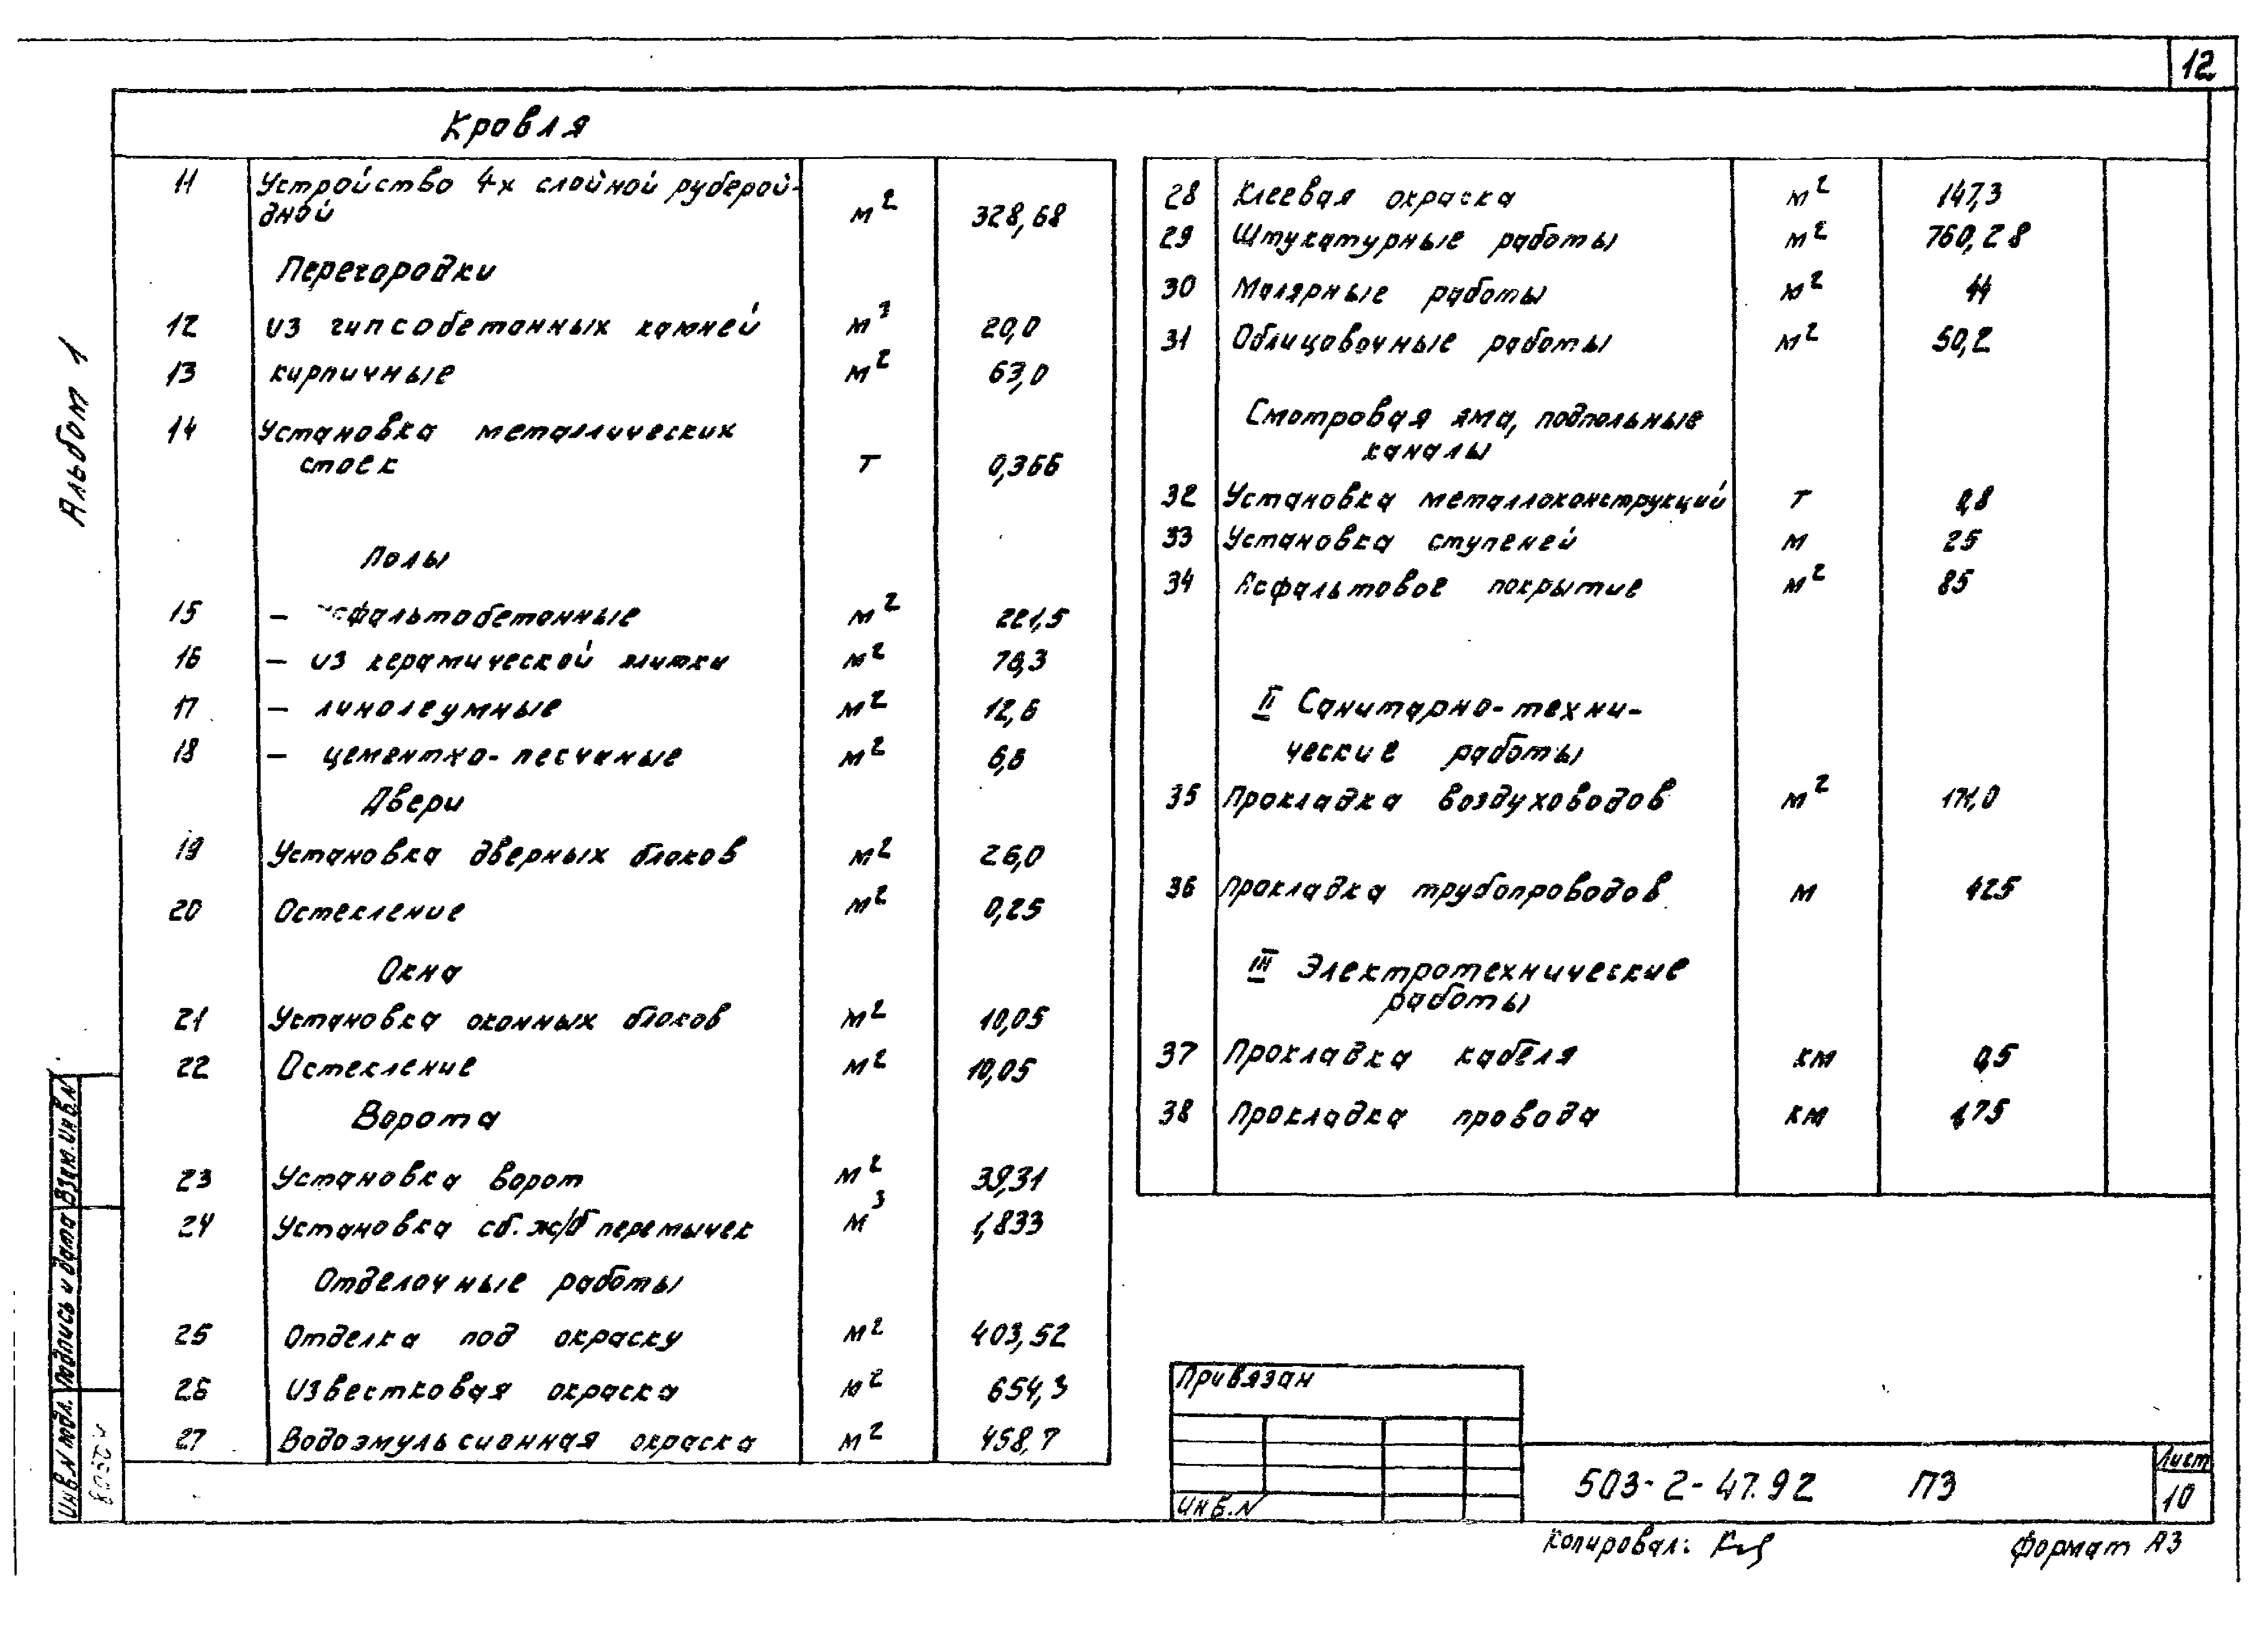 12
Кровля
11 Устройство 4х слойной руберой-
дной м² 328,68
Перегородки
12 из гипсобетонных камней м² 20,0
13 кирпичные м² 63,0
14 Установка металлических
стоек т 0,366
Полы
15 – асфальтобетонные м² 221,5
16 – из керамической плитки м² 78,3
17 – линолеумные м² 12,6
18 – цементно-песчаные м² 6,6
Двери
19 Установка дверных блоков м² 26,0
20 Остекление м² 0,25
Окна
21 Установка оконных блоков м² 10,05
22 Остекление м² 10,05
Ворота
23 Установка ворот м² 39,31
24 Установка сб. ж/б перемычек м³ 1,833
Отделочные работы
25 Отделка под окраску м² 403,52
26 Известковая окраска м² 654,3
27 Водоэмульсионная окраска м² 458,7
28 Клеевая окраска м² 147,3
29 Штукатурные работы м² 760,28
30 Малярные работы м² 44
31 Облицовочные работы м² 50,2
Смотровая яма, подпольные
каналы
32 Установка металлоконструкций т 0,8
33 Установка ступеней м 25
34 Асфальтовое покрытие м² 85
II Санитарно-техни-
ческие работы
35 Прокладка воздуховодов м² 171,0
36 Прокладка трубопроводов м 425
III Электротехнические
работы
37 Прокладка кабеля км 0,5
38 Прокладка провода км 1,75
Альбом 1
Взам. инв. N
Подпись и дата
Инв. N подл.
Привязан
Инв. N
503-2-47.92 ПЗ
Лист
10
Копировал:
Формат А3